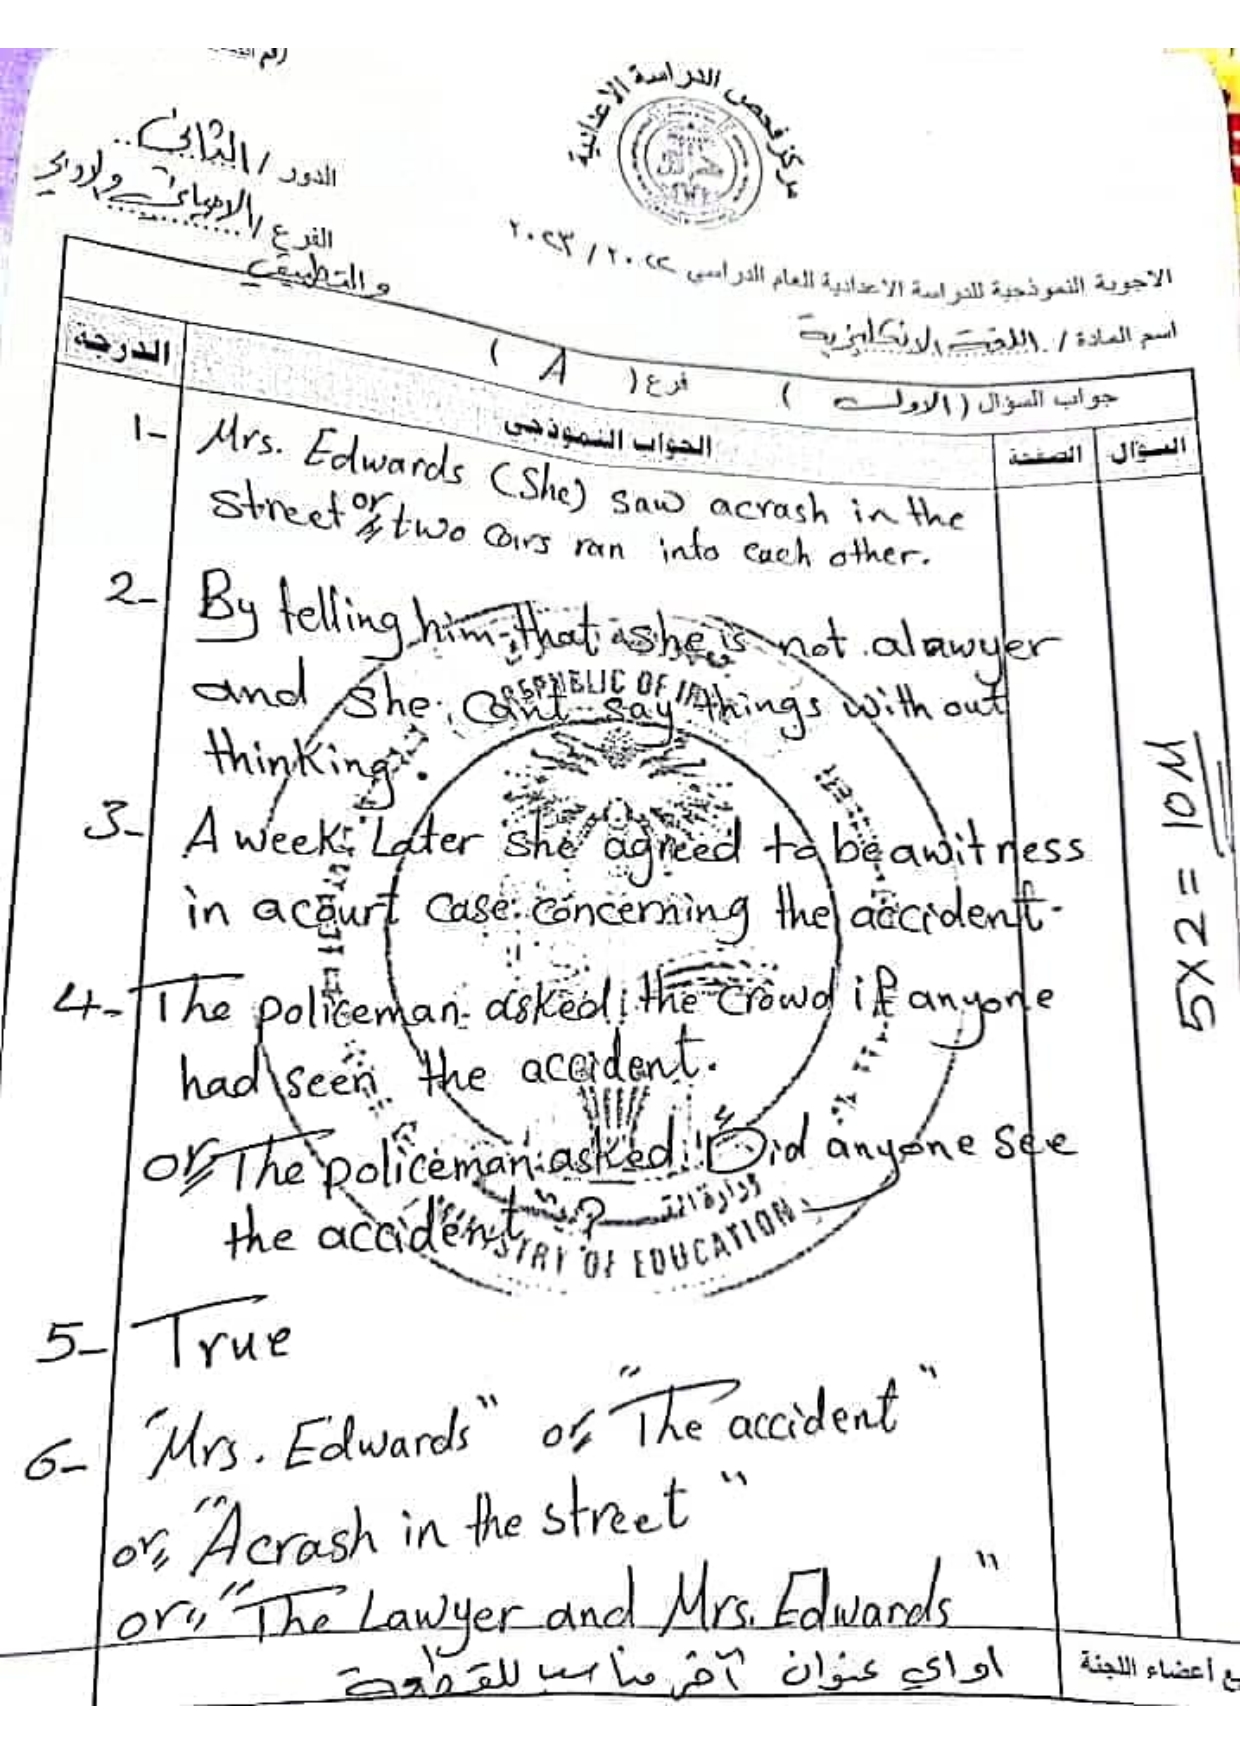 مركز فحص الدراسة الاعدادية
الدور / الثاني
الفرع / الاحيائي والادبي
والتطبيقي
الاجوبة النموذجية للدراسة الاعدادية للعام الدراسي ٢٠٢٢ / ٢٠٢٣
اسم المادة / اللغة الانكليزية
جواب السؤال ( الاول ) فرع ( A )
السؤال الصفحة الجواب النموذجي الدرجة
1- Mrs. Edwards (She) saw acrash in the
street or two cars ran into each other.
2- By telling him that she is not alawyer
and she can't say things with out
thinking.
3- A week Later she agreed to be awitness
in acourt case concerning the accident.
4- The policeman asked the crowd if anyone
had seen the accident.
or The policeman asked "Did anyone see
the accident?
5- True
6- "Mrs. Edwards" or "The accident"
or "Acrash in the street"
or "The Lawyer and Mrs. Edwards"
او اي عنوان آخر مناسب للقطعة
5x2 = 10M
REPUBLIC OF
وزارة
MINISTRY OF EDUCATION
أعضاء اللجنة